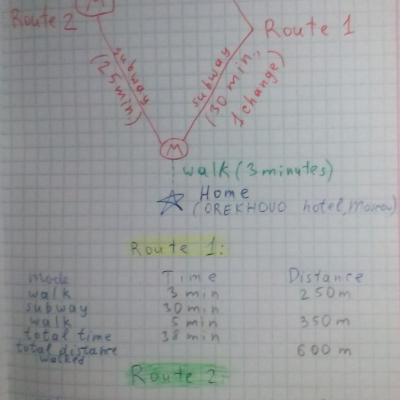 M
Route 2
Route 1
subway
(25min)
subway
(30 min,
1 change)
M
walk (3 minutes)
Home
(OREKHOVO hotel,
Route 1:
Mode Time Distance
walk 3 min 250m
subway 30 min
walk 5 min 350m
total time 38 min
total distance
walked 600m
Route 2: